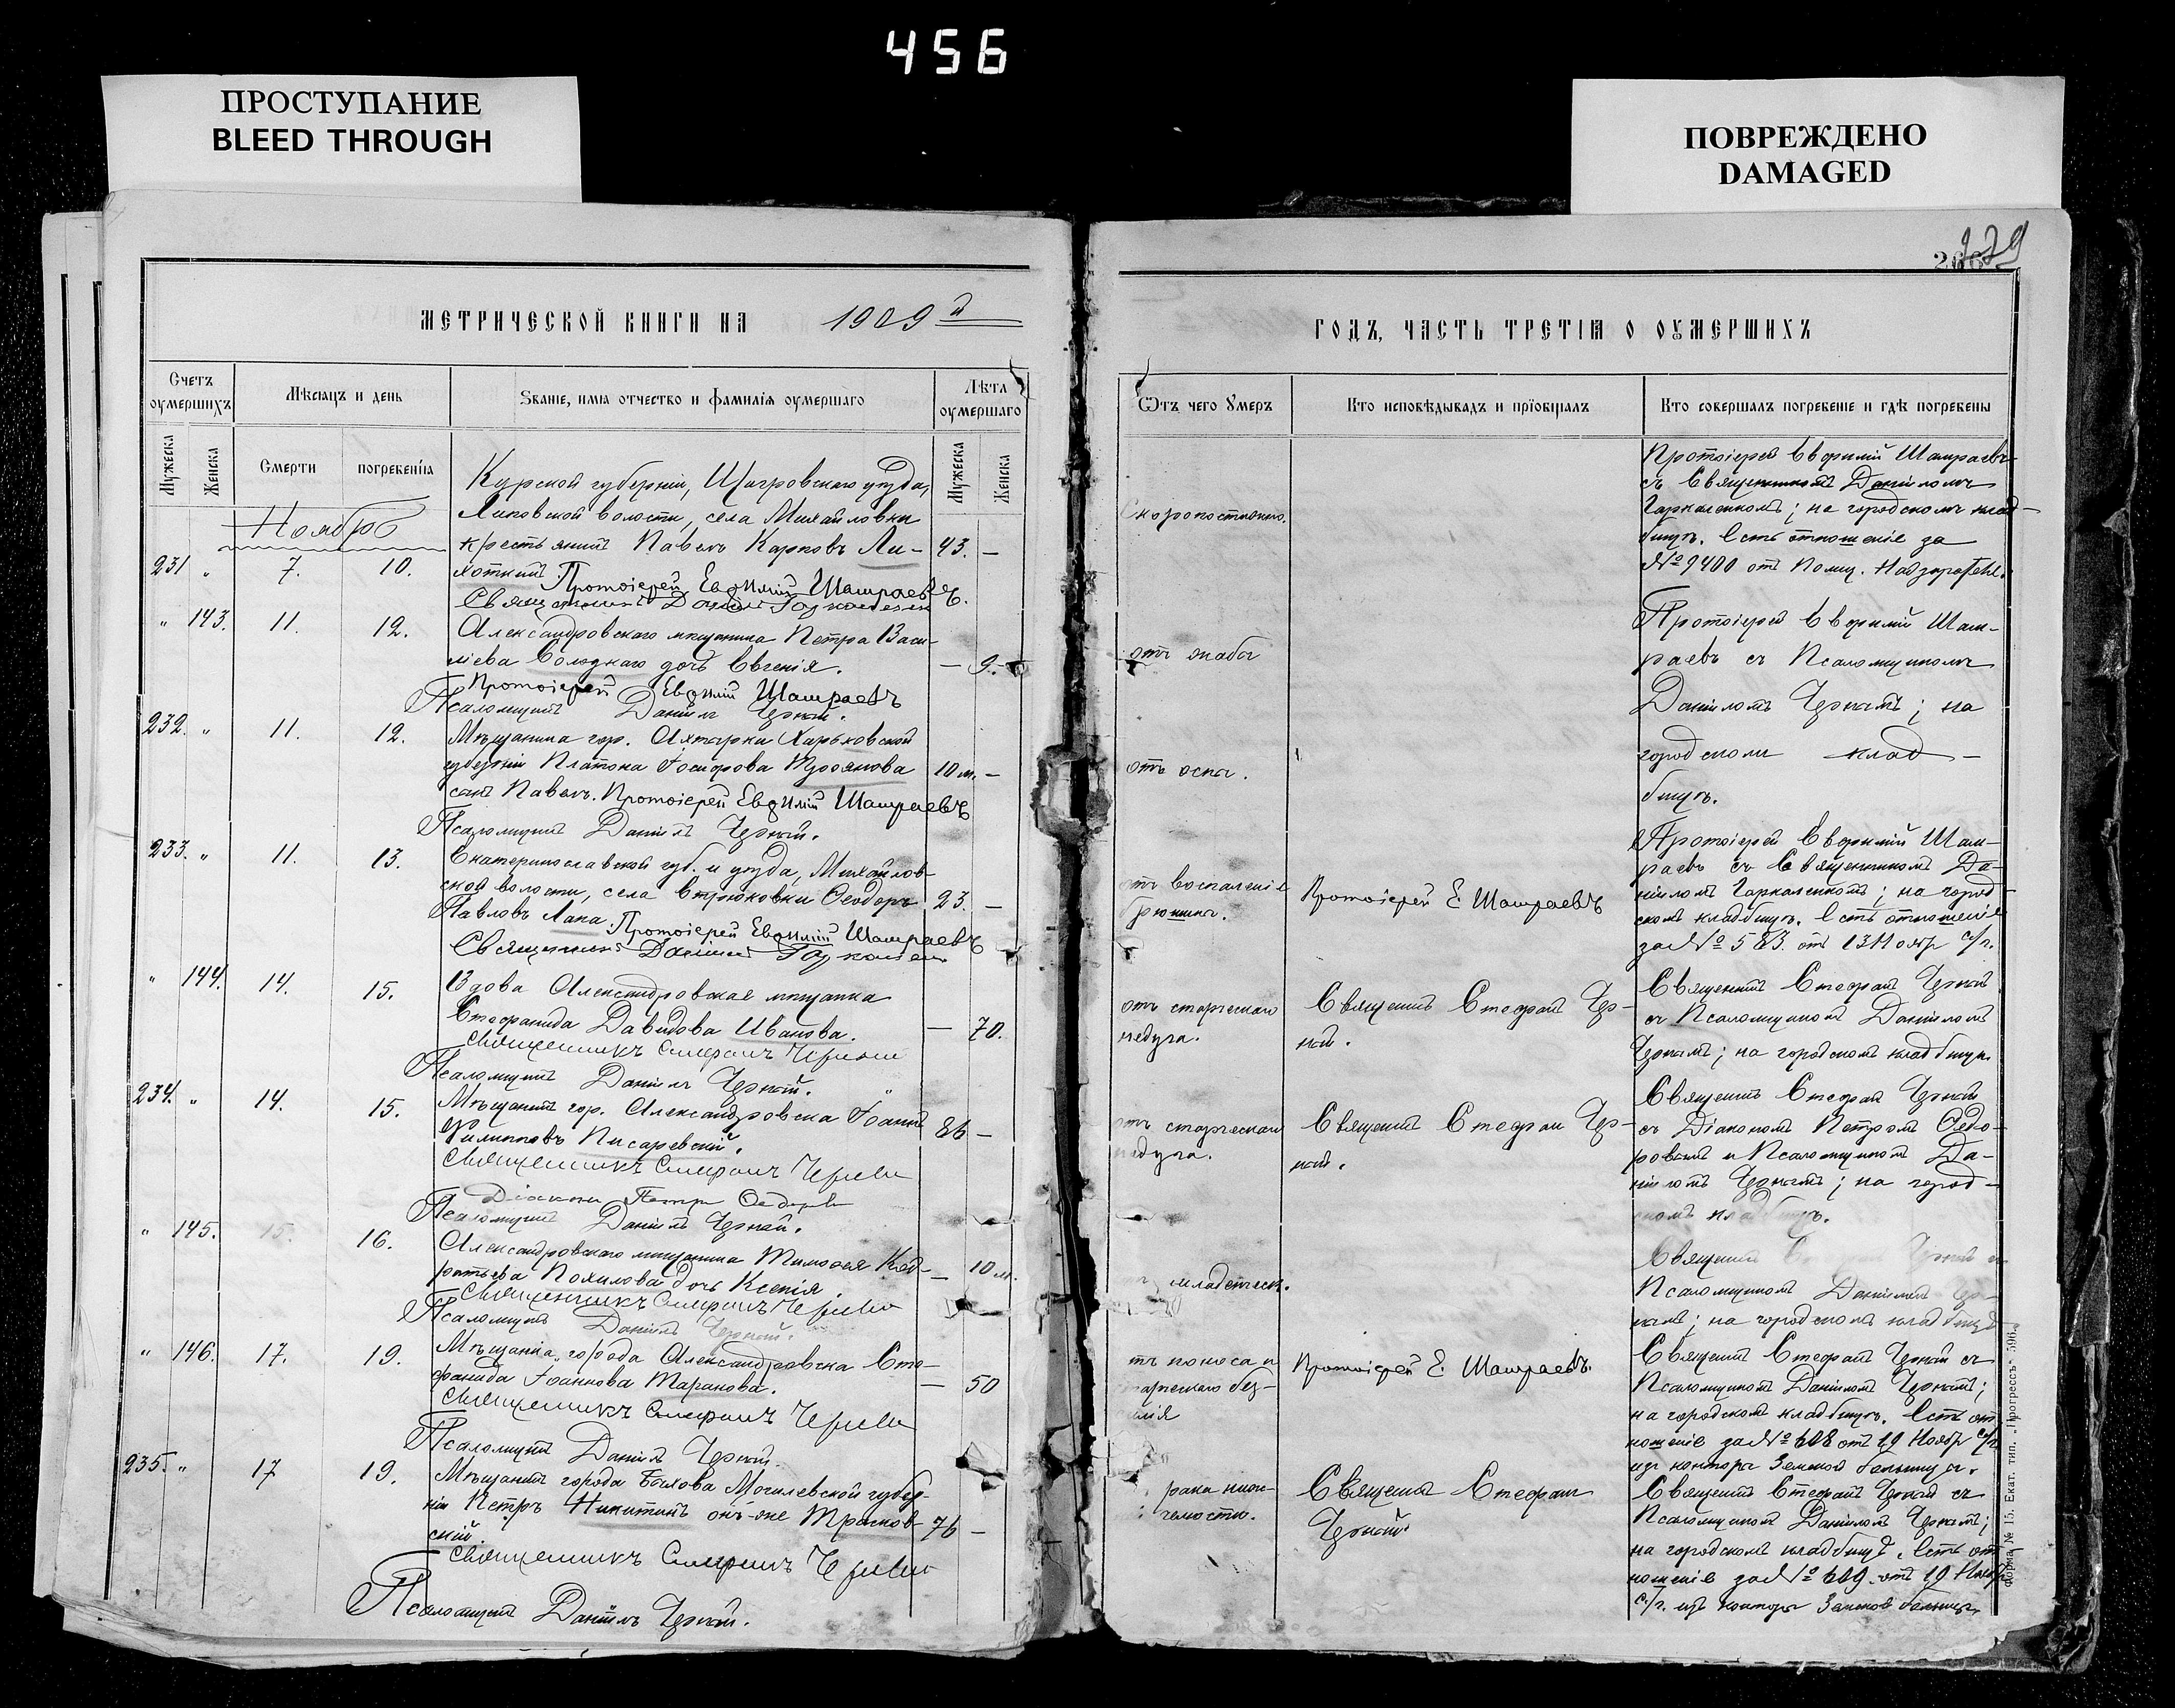 456
ПРОСТУПАНИЕ
BLEED THROUGH
ПОВРЕЖДЕНО
DAMAGED
МЕТРИЧЕСКОЙ КНИГИ НА 1909 й
Счетъ оумершихъ
Мѣсяцъ и день
Званіе, имя отчество и фамилія оумершаго
Лѣта оумершаго
Мужеска
Женска
Смерти
погребенія
Мужеска
Женска
Ноябрь
Курской губерніи, Щигровскаго уѣзда,
Липовской волости, села Михайловки
крестьянинъ Павелъ Карповъ Ли- 43. –
231 " 7. 10. хоткинъ. Протоіерей Евфимій Шамраевъ.
Священникъ Даніилъ
" 143. 11. 12. Александровскаго мѣщанина Петра Васи-
ліева дочь Евгенія. – 9.
Протоіерей Евфимій Шамраевъ
Псаломщикъ Даніилъ Черный.
232. " 11. 12. Мѣщанина гор. Ахтырки Харьковской
губерніи Платона Іосифова Троянова 10 м. –
сынъ Павелъ. Протоіерей Евфимій Шамраевъ
Псаломщикъ Даніилъ Черный.
233. " 11. 13. Екатеринославской губ. и уѣзда, Михайлов-
ской волости, села Стрюковки Ѳеодоръ 23. –
Павловъ Лапа. Протоіерей Евфимій Шамраевъ
Священникъ Даніилъ
" 144. 14. 15. Вдова Александровская мѣщанка
Стефанида Давидова Иванова. – 70.
Священникъ Стефанъ Черный
Псаломщикъ Даніилъ Черный.
234. " 14. 15. Мѣщанинъ гор. Александровска Іоаннъ
Филипповъ Писаревскій. 86 –
Священникъ Стефанъ Черный
Діаконъ Петръ
Псаломщикъ Даніилъ Черный.
" 145. 15. 16. Александровскаго мѣщанина Тимоѳея Код-
ратьева Похилова дочь Ксенія. – 10 м.
Священникъ Стефанъ Черный
Псаломщикъ Даніилъ Черный.
" 146. 17. 19. Мѣщанка города Александровска Сте-
фанида Іоаннова Таранова. – 50
Священникъ Стефанъ Черный
Псаломщикъ Даніилъ Черный.
235. " 17 19. Мѣщанинъ города Быхова Могилевской губер-
ніи Петръ Никитинъ онъ-же Трасков- 76 –
скій.
Священникъ Стефанъ Черный
Псаломщикъ Даніилъ Черный.
ГОДЪ, ЧАСТЬ ТРЕТІЯ О ОУМЕРШИХЪ
Ѿтъ чего умеръ
Кто исповѣдывалъ и прїобщалъ
Кто совершалъ погребеніе и гдѣ погребены
Скоропостижно.
Протоіерей Евфимій Шамраевъ
съ Священникомъ Даніиломъ
на городскомъ клад-
бищѣ. Есть отношеніе за
№ 9400 отъ Полиц. Надзирателя.
отъ жабы
Протоіерей Евфимій Шам-
раевъ съ Псаломщикомъ
Даніиломъ Чернымъ; на
городскомъ клад-
бищѣ.
отъ оспы.
отъ воспаленія
брюшины.
Протоіерей Е. Шамраевъ
Протоіерей Евфимій Шам-
раевъ съ Священникомъ Да-
ніиломъ на город-
скомъ кладбищѣ. Есть отношеніе
за № 583. отъ 13 Ноябр с/г.
отъ старческаго
недуга.
Священникъ Стефанъ Чер-
ный.
Священникъ Стефанъ Черный
съ Псаломщикомъ Даніиломъ
Чернымъ; на городскомъ кладбищѣ.
отъ старческаго
недуга.
Священникъ Стефанъ Чер-
ный.
Священникъ Стефанъ Черный
съ Діакономъ Петромъ Ѳедо-
ровымъ и Псаломщикомъ Да-
ніиломъ Чернымъ; на город-
скомъ кладбищѣ.
младенческ.
Священникъ Черный
Псаломщикомъ Даніиломъ Чер-
нымъ; на городскомъ кладбищѣ
отъ поноса и
старческаго без-
силія
Протоіерей Е. Шамраевъ.
Священникъ Стефанъ Черный съ
Псаломщикомъ Даніиломъ Чернымъ;
на городскомъ кладбищѣ. Есть от-
ношеніе за № 608 отъ 19 Ноябр с/г.
изъ конторы Земской больницы.
рака
Священникъ Стефанъ
Черный.
Священникъ Стефанъ Черный съ
Псаломщикомъ Даніиломъ Чернымъ;
на городскомъ кладбищѣ. Есть от-
ношеніе за № 609. отъ 19 Ноябр
с/г. изъ конторы Земской больницы.
Форма № 15. Екат. тип. „Прогрессъ“ 596.